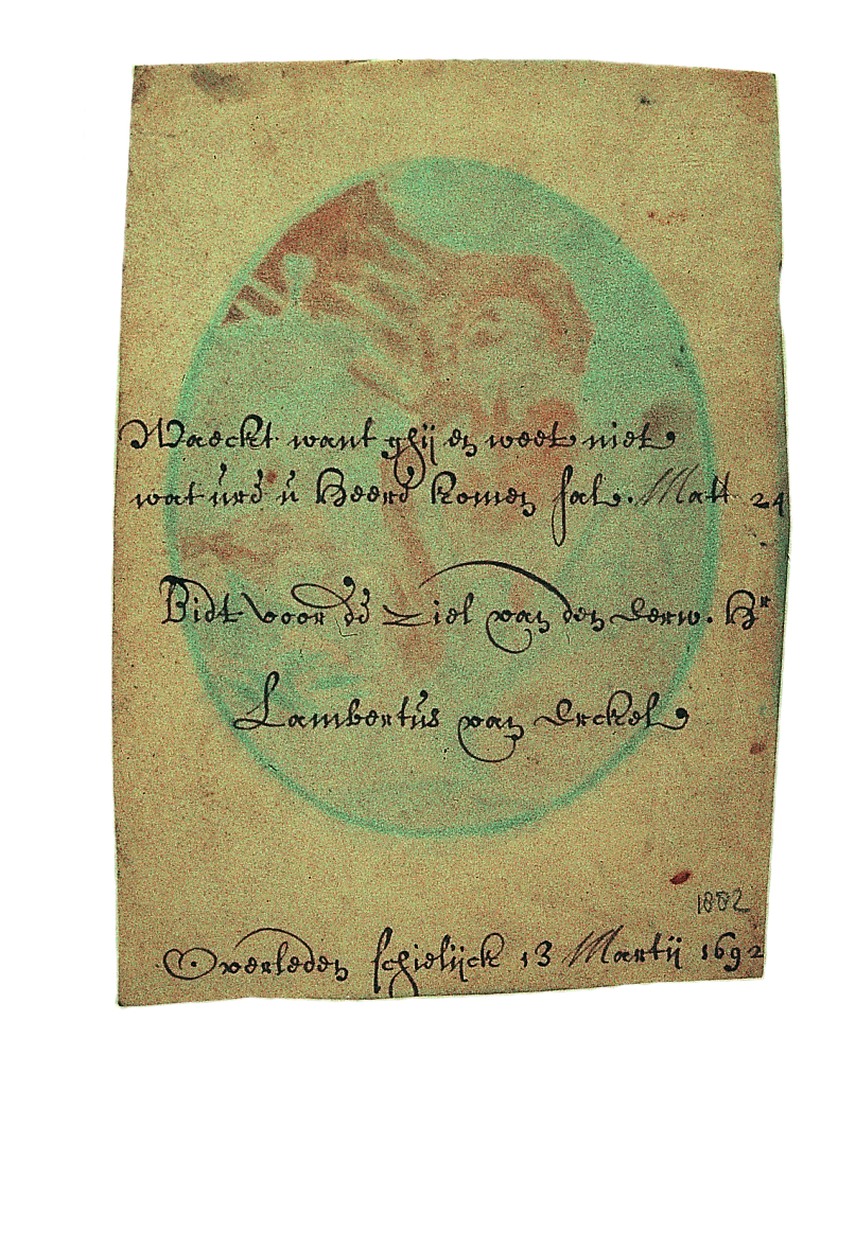 Waeckt want ghij en weet niet
wat ùrd ù Heerd komen sal. Matt 24
Bidt voor dd Ziel van den Eerw. Hr
Lambertùs van Erckel
1882
Overleden schielijck 13 Martij 1692